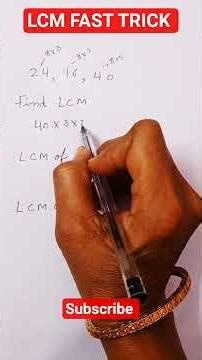 LCM FAST TRICK
8x3 8x2 8x5
24, 16, 40
Find LCM
40 x 3 x 2
LCM of
LCM
Subscribe